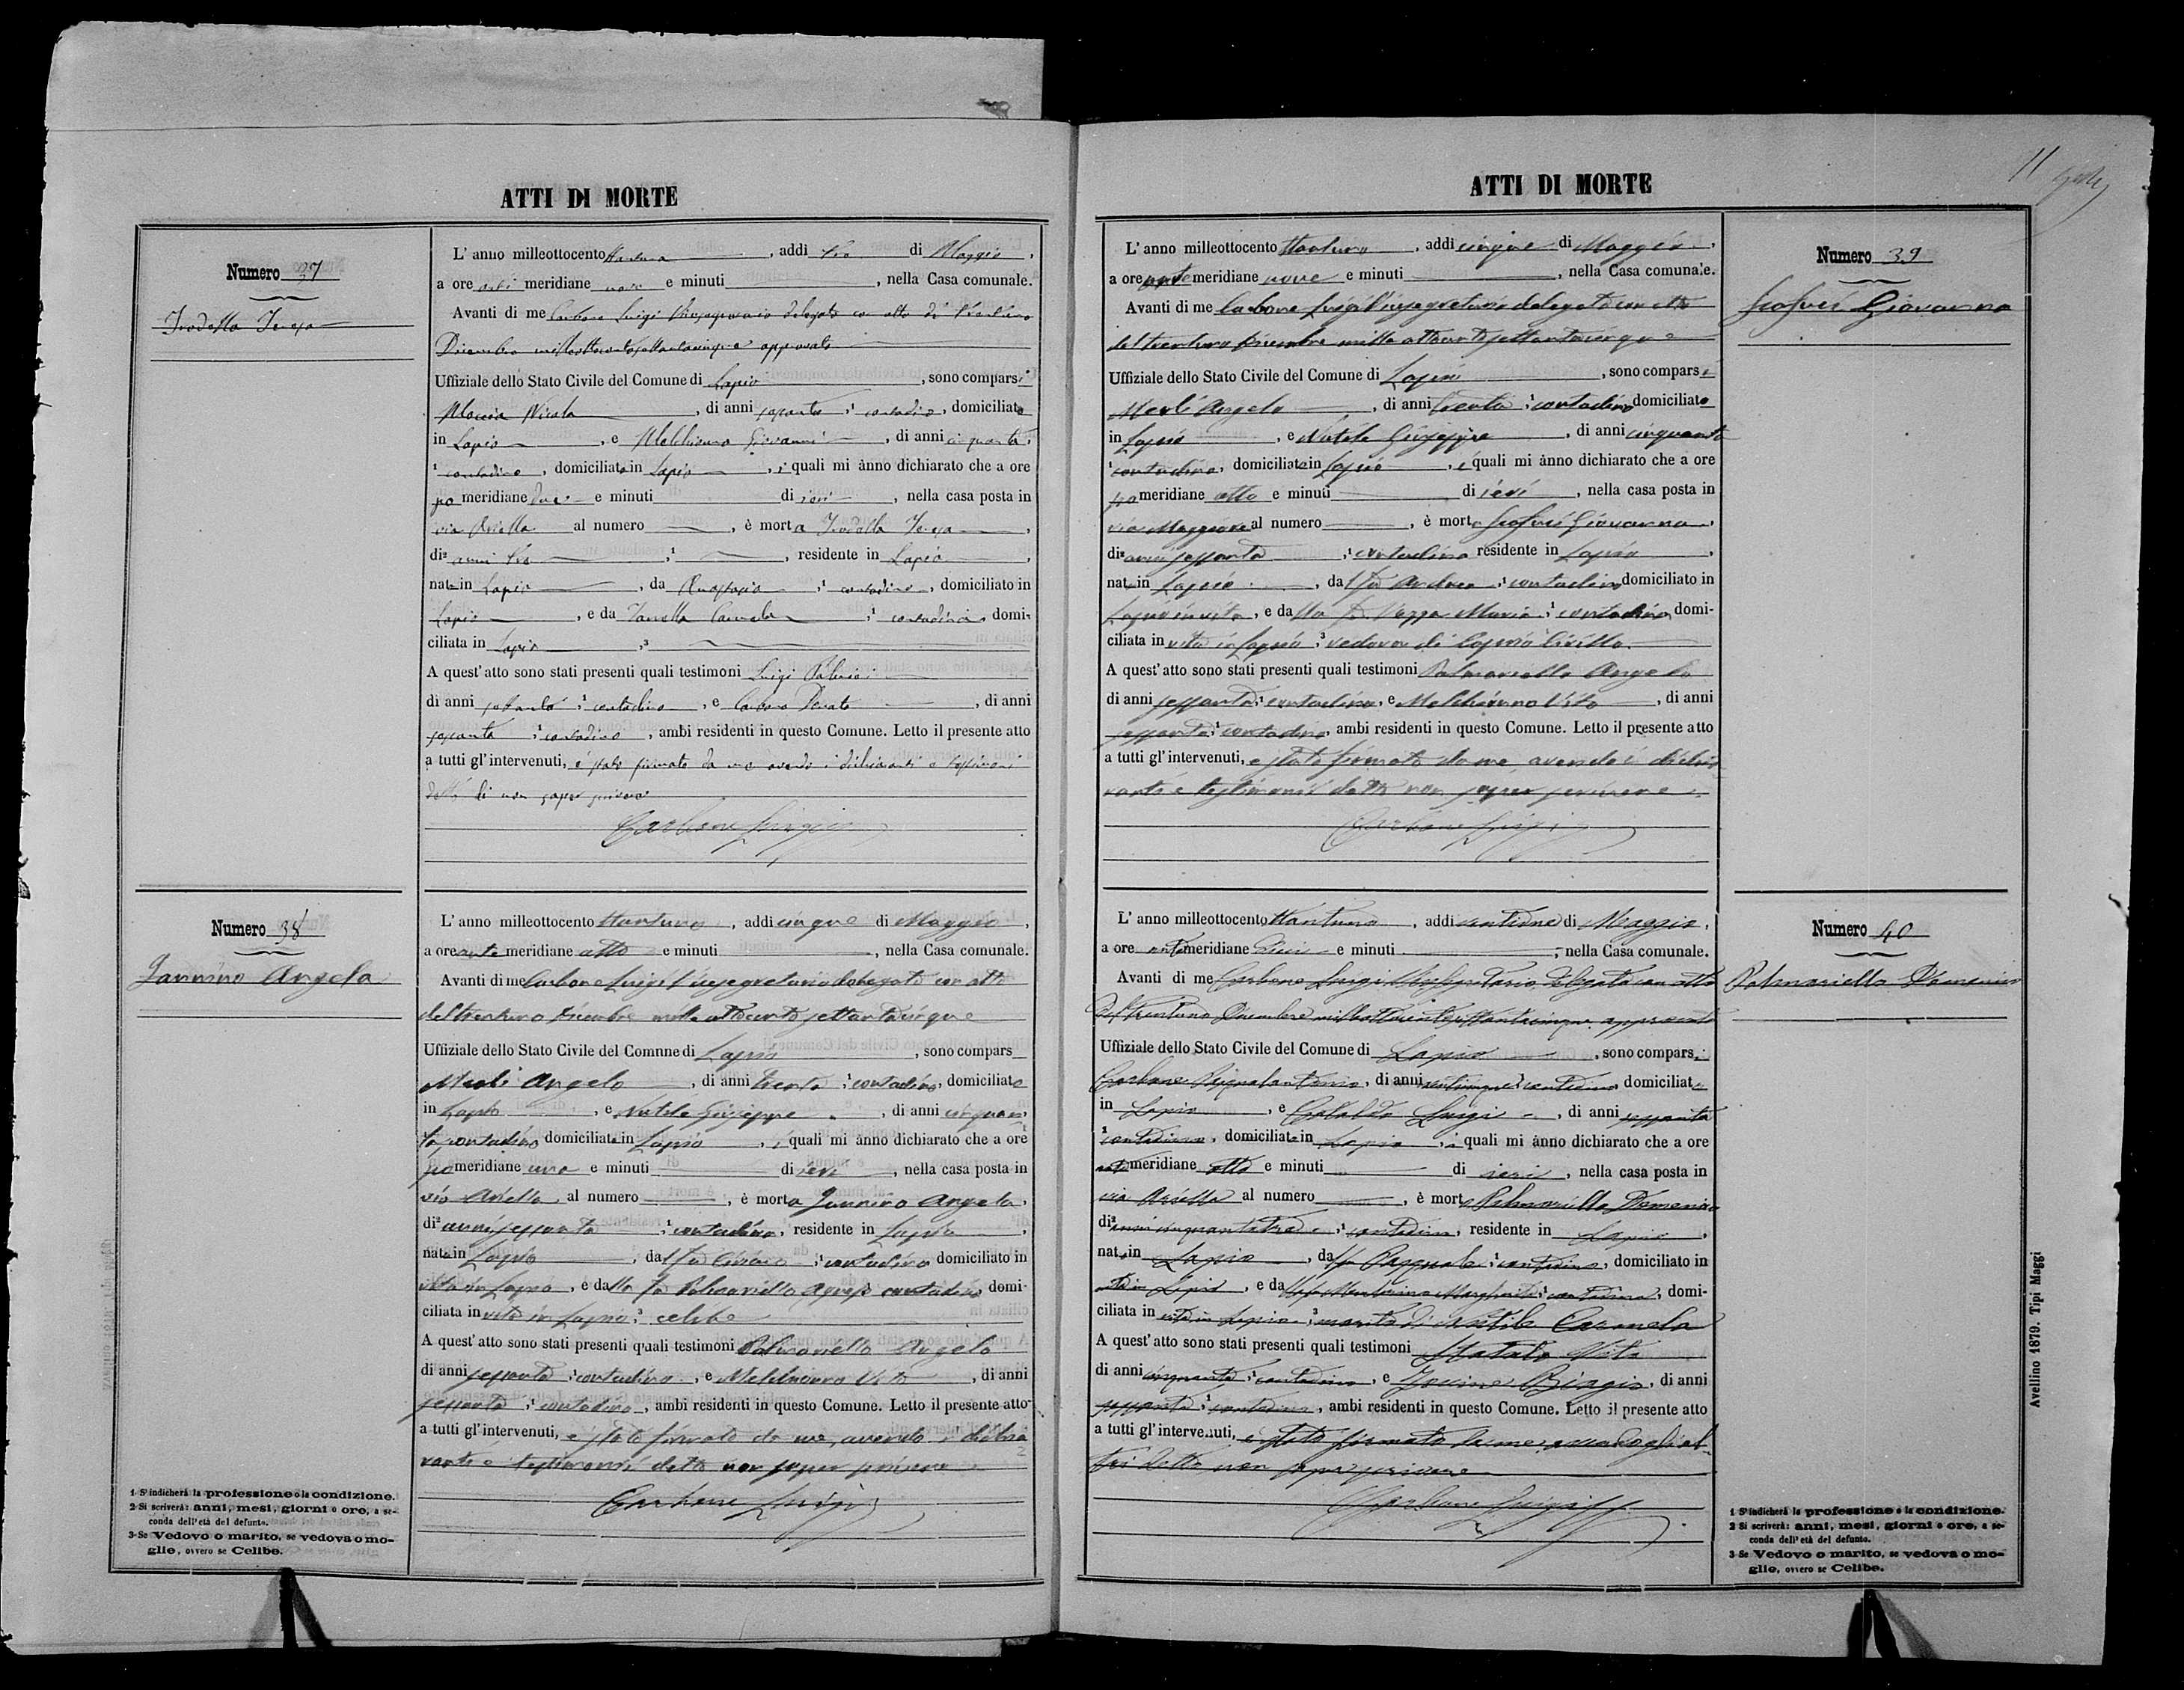 ATTI DI MORTE
Numero 37
Teresa
L' anno milleottocento ottantuno, addì tre di Maggio,
a ore anti meridiane nove e minuti, nella Casa comunale.
Avanti di me Carbone Luigi Vicesegretario delegato con atto del trentuno
Dicembre milleottocentosettantacinque approvato
Uffiziale dello Stato Civile del Comune di Lapio, sono comparsi
Nicola, di anni sessanta, 1 contadino, domiciliato
in Lapio, e Melchionno Giovanni, di anni cinquanta,
1 contadino, domiciliato in Lapio, i quali mi ànno dichiarato che a ore
po meridiane due e minuti di ieri, nella casa posta in
via Ariella al numero, è morta Teresa,
di 2 anni tre, 1, residente in Lapio,
nata in Lapio, da, 1 contadino, domiciliato in
Lapio, e da Carmela, 1 contadina, domi-
ciliata in Lapio, 3
A quest' atto sono stati presenti quali testimoni Luigi
di anni, 1 contadino, e Carbone Donato, di anni
sessanta, 1 contadino, ambi residenti in questo Comune. Letto il presente atto
a tutti gl' intervenuti, è stato firmato da me avendo i dichiaranti e testimoni
detto di non saper scrivere
Carbone Luigi
Numero 38
Jannino Angela
L' anno milleottocento ottantuno, addì cinque di Maggio,
a ore ante meridiane otto e minuti, nella Casa comunale.
Avanti di me Carbone Luigi Vicesegretario delegato con atto
del trentuno Dicembre mille ottocento settantacinque
Uffiziale dello Stato Civile del Comnne di Lapio, sono compars
Meoli Angelo, di anni trenta, 1 contadino, domiciliato
in Lapio, e Natale Giuseppe, di anni cinquan
ta, contadino domiciliato in Lapio, i quali mi ànno dichiarato che a ore
po meridiane una e minuti di ieri, nella casa posta in
via Ariella al numero, è morta Jannino Angela,
di 2 anni sessanta, 1 contadina, residente in Lapio,
nata in Lapio, da fu, 1 contadino domiciliato in
vita in Lapio, e dalla fu contadina domi-
ciliata in vita in Lapio, 3 celibe
A quest' atto sono stati presenti quali testimoni Palmariello Angelo
di anni sessanta, 1 contadino, e Melchionno Vito, di anni
sessanta, 1 contadino, ambi residenti in questo Comune. Letto il presente atto
a tutti gl' intervenuti, è stato firmato da me, avendo i dichia
ranti e testimonii detto non saper scrivere
Carbone Luigi
1 S' indicherà la professione o la condizione.
2 Si scriverà: anni, mesi, giorni o ore, a se-
conda dell' età del defunto.
3 Se Vedovo o marito, se vedova o mo-
glie, ovvero se Celibe.
ATTI DI MORTE
11
L' anno milleottocento ottantuno, addì cinque di Maggio,
a ore ante meridiane nove e minuti, nella Casa comunale.
Avanti di me Carbone Luigi Vicesegretario delegato con atto
del trentuno Dicembre mille ottocento settantacinque
Uffiziale dello Stato Civile del Comune di Lapio, sono comparsi
Meoli Angelo, di anni trenta, 1 contadino domiciliato
in Lapio, e Natale Giuseppe, di anni cinquanta
1 contadino, domiciliato in Lapio, i quali mi ànno dichiarato che a ore
po meridiane otto e minuti di ieri, nella casa posta in
via Maggiore al numero, è morta Giovanna,
di 2 anni sessanta, 1 contadina residente in Lapio,
nata in Lapio, dal fu Andrea, 1 contadino domiciliato in
Lapio in vita, e dalla fu Maria, 1 contadina domi-
ciliata in vita in Lapio, 3 vedova di Cirillo
A quest' atto sono stati presenti quali testimoni Palmariello Angelo
di anni sessanta, 1 contadino, e Melchionno Vito, di anni
sessanta, 1 contadino, ambi residenti in questo Comune. Letto il presente atto
a tutti gl' intervenuti, è stato firmato da me, avendo i dichia
ranti e testimonii detto non saper scrivere
Carbone Luigi
Numero 39
Giovanna
L' anno milleottocento ottantuno, addì ventidue di Maggio,
a ore anti meridiane dieci e minuti, nella Casa comunale.
Avanti di me Carbone Luigi Vicesegretario delegato con atto
del trentuno Dicembre milleottocento settantacinque approvato
Uffiziale dello Stato Civile del Comune di Lapio, sono comparsi
Carbone, di anni venticinque, 1 contadino domiciliato
in Lapio, e Luigi, di anni sessanta
1 contadino, domiciliato in Lapio, i quali mi ànno dichiarato che a ore
anti meridiane otto e minuti di ieri, nella casa posta in
via Ariella al numero, è morto Palmariello Domenico
di 2 anni cinquantatre, 1 contadino, residente in Lapio,
nato in Lapio, dal fu Pasquale, 1 contadino, domiciliato in
vita in Lapio, e dalla fu Margherita, 1 contadina, domi-
ciliata in vita in Lapio, 3 marito di Natale Carmela
A quest' atto sono stati presenti quali testimoni Vito
di anni cinquanta, 1 contadino, e Biagio, di anni
sessanta, 1 contadino, ambi residenti in questo Comune. Letto il presente atto
a tutti gl' intervenuti, è stato firmato da me avendo gli al-
tri detto non saper scrivere
Carbone Luigi
Numero 40
Palmariello Domenico
1 S' indicherà la professione o la condizione.
2 Si scriverà: anni, mesi, giorni o ore, a se-
conda dell' età del defunto.
3 Se Vedovo o marito, se vedova o mo-
glie, ovvero se Celibe.
Avellino 1879. Tipi Maggi